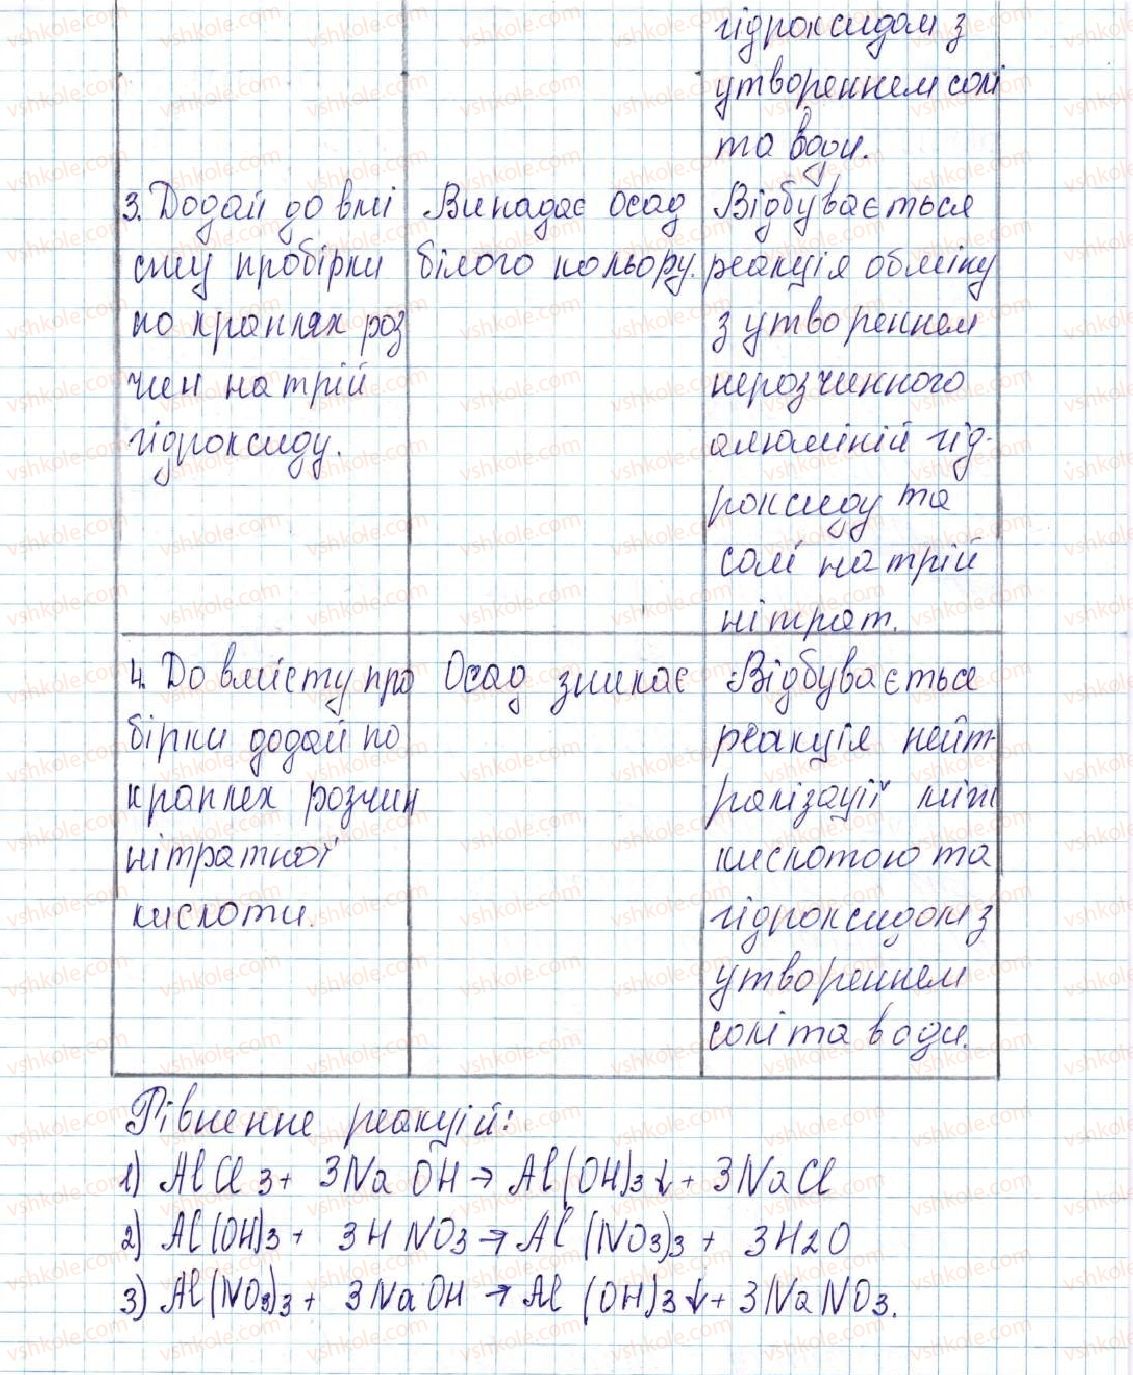 гідроксидом з
утворенням солі
та води.
3. Додай до вмі
сту пробірки
по краплях роз
чин натрій
гідроксиду.
Випадає осад
білого кольору.
Відбувається
реакція обміну
з утворенням
нерозчинного
алюміній гід-
роксиду та
солі натрій
нітрат.
4. До вмісту про
бірки додай по
краплях розчин
нітратної
кислоти.
Осад зникає
Відбувається
реакція нейт-
ралізації між
кислотою та
гідроксидом з
утворенням
солі та води.
Рівняння реакцій:
1) AlCl3 + 3NaOH → Al(OH)3↓ + 3NaCl
2) Al(OH)3 + 3HNO3 → Al(NO3)3 + 3H2O
3) Al(NO3)3 + 3NaOH → Al(OH)3↓ + 3NaNO3.
vshkole.com